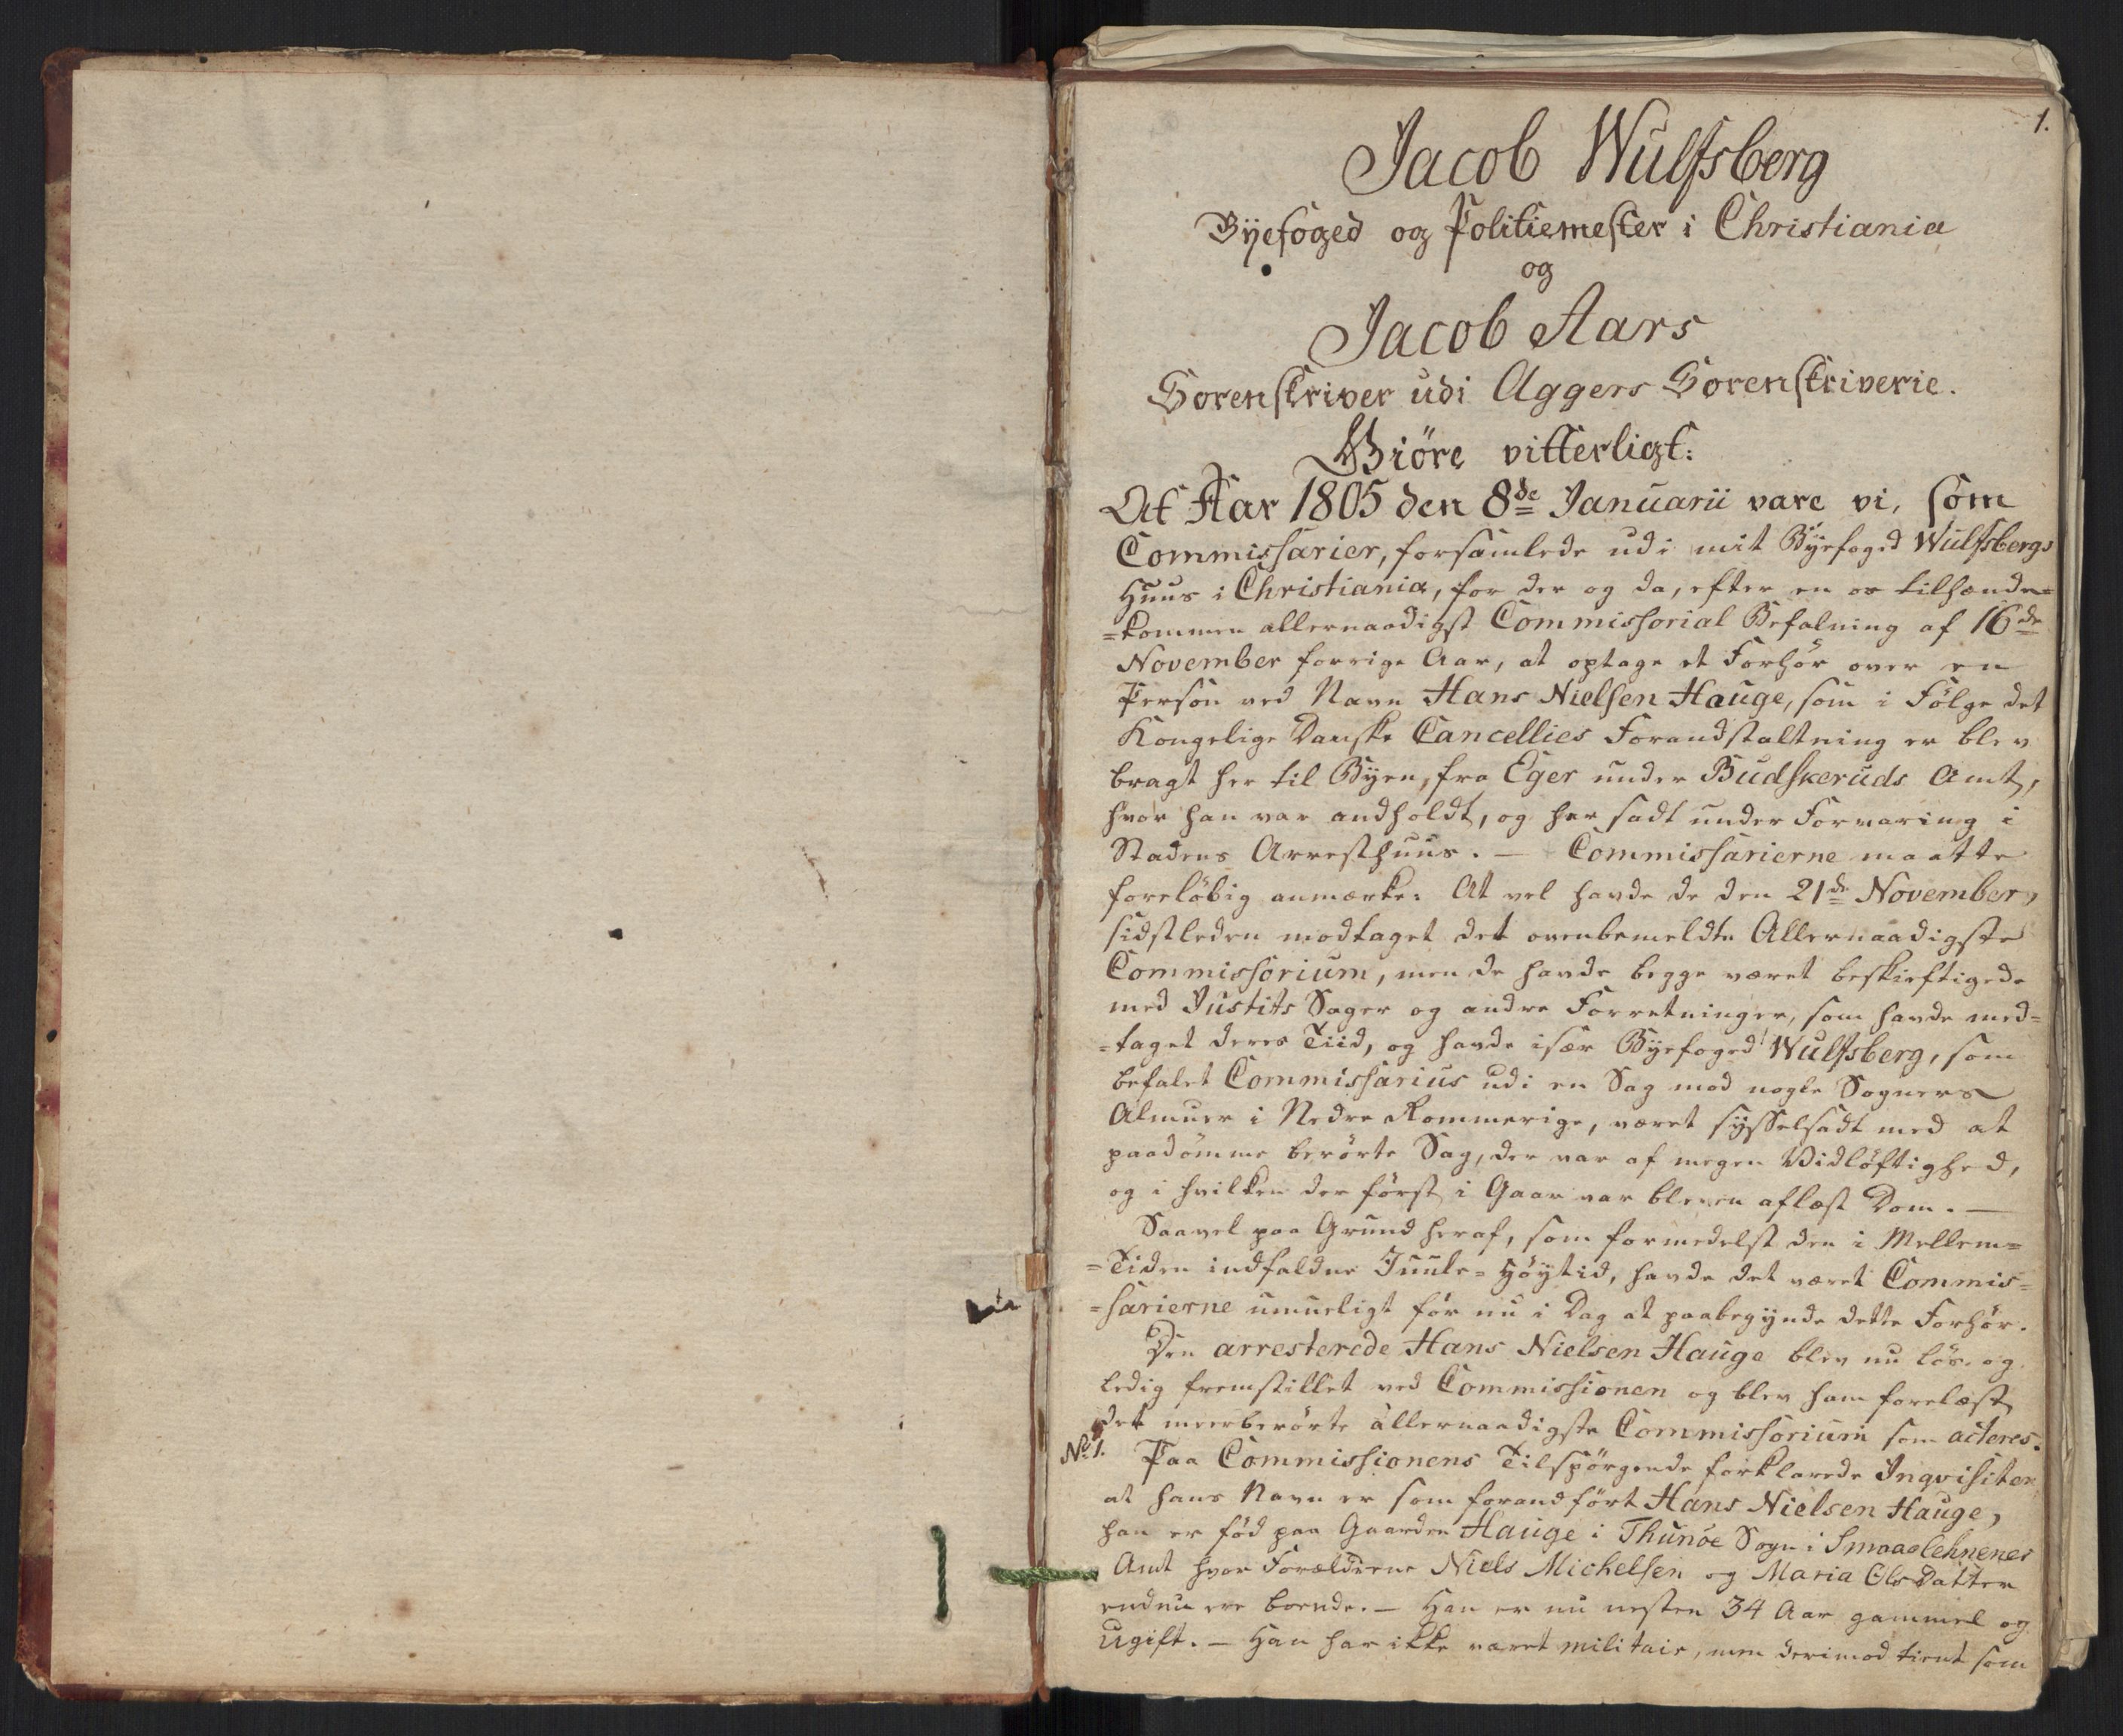 1.
Jacob Wulfsberg
Byefoged og Politiemester i Christiania
og
Jacob Aars
Sorenskriver udi Aggers Sorenskriverie.
Giöre vitterligt:
At Aar 1805 den 8de Januarii vare vi, som
Commissarier, forsamlede udi mit Byefoged Wulfsbergs
Huus i Christiania, for der og da, efter en os tilhænde=
=kommen allernaadigst Commissorial Befalning af 16de
November forrige Aar, at optage et Forhör over en
Person ved Navn Hans Nielsen Hauge, som i Fölge det
Kongelige Danske Cancellies Foranstaltning er blev
bragt her til Byen, fra Eger under Budskeruds Amt,
hvor han var andholdt, og her sadt under Forvaring i
Stadens Arresthuus. — Commissarierne maatte
forelöbig anmærke: At vel havde de den 21de November,
sidstleden modtaget det ovenbemeldte Allernaadigste
Commissorium, men de havde begge været beskieftigede
med Justits Sager og andre Forretninger, som havde med=
=taget deres Tiid, og havde især Byefoged Wulfsberg, som
befalet Commissarius udi en Sag mod nogle Sogners
Almuer i Nedre Rommerige, været sysselsadt med at
paadömme berörte Sag, der var af megen Vidlöftighed,
og i hvilken der först i Gaar var bleven aflæst Dom. —
Saavel paa Grund heraf, som formedelst den i Mellem=
=Tiden indfaldne Juule=Höytid, havde det været Commis=
=sarierne umueligt för nu i Dag at paabegynde dette Forhör.
Den arresterede Hans Nielsen Hauge blev nu lös og
ledig fremstillet ved Commissionen og blev ham forelæst
det meerberörte allernaadigste Commissorium som acteres.
No 1. Paa Commissionens Tilspörgende forklarede Inqvisiten
at hans Navn er som forandfört Hans Nielsen Hauge,
han er föd paa Gaarden Hauge i Thunöe Sogn i Smaaelehnenes
Amt hvor Forældrene Niels Michelsen og Maria Olsdatter
endnu ere boende. — Han er nu nesten 34 Aar gammel og
ugift. — Han har ikke været militair, men derimod tient som